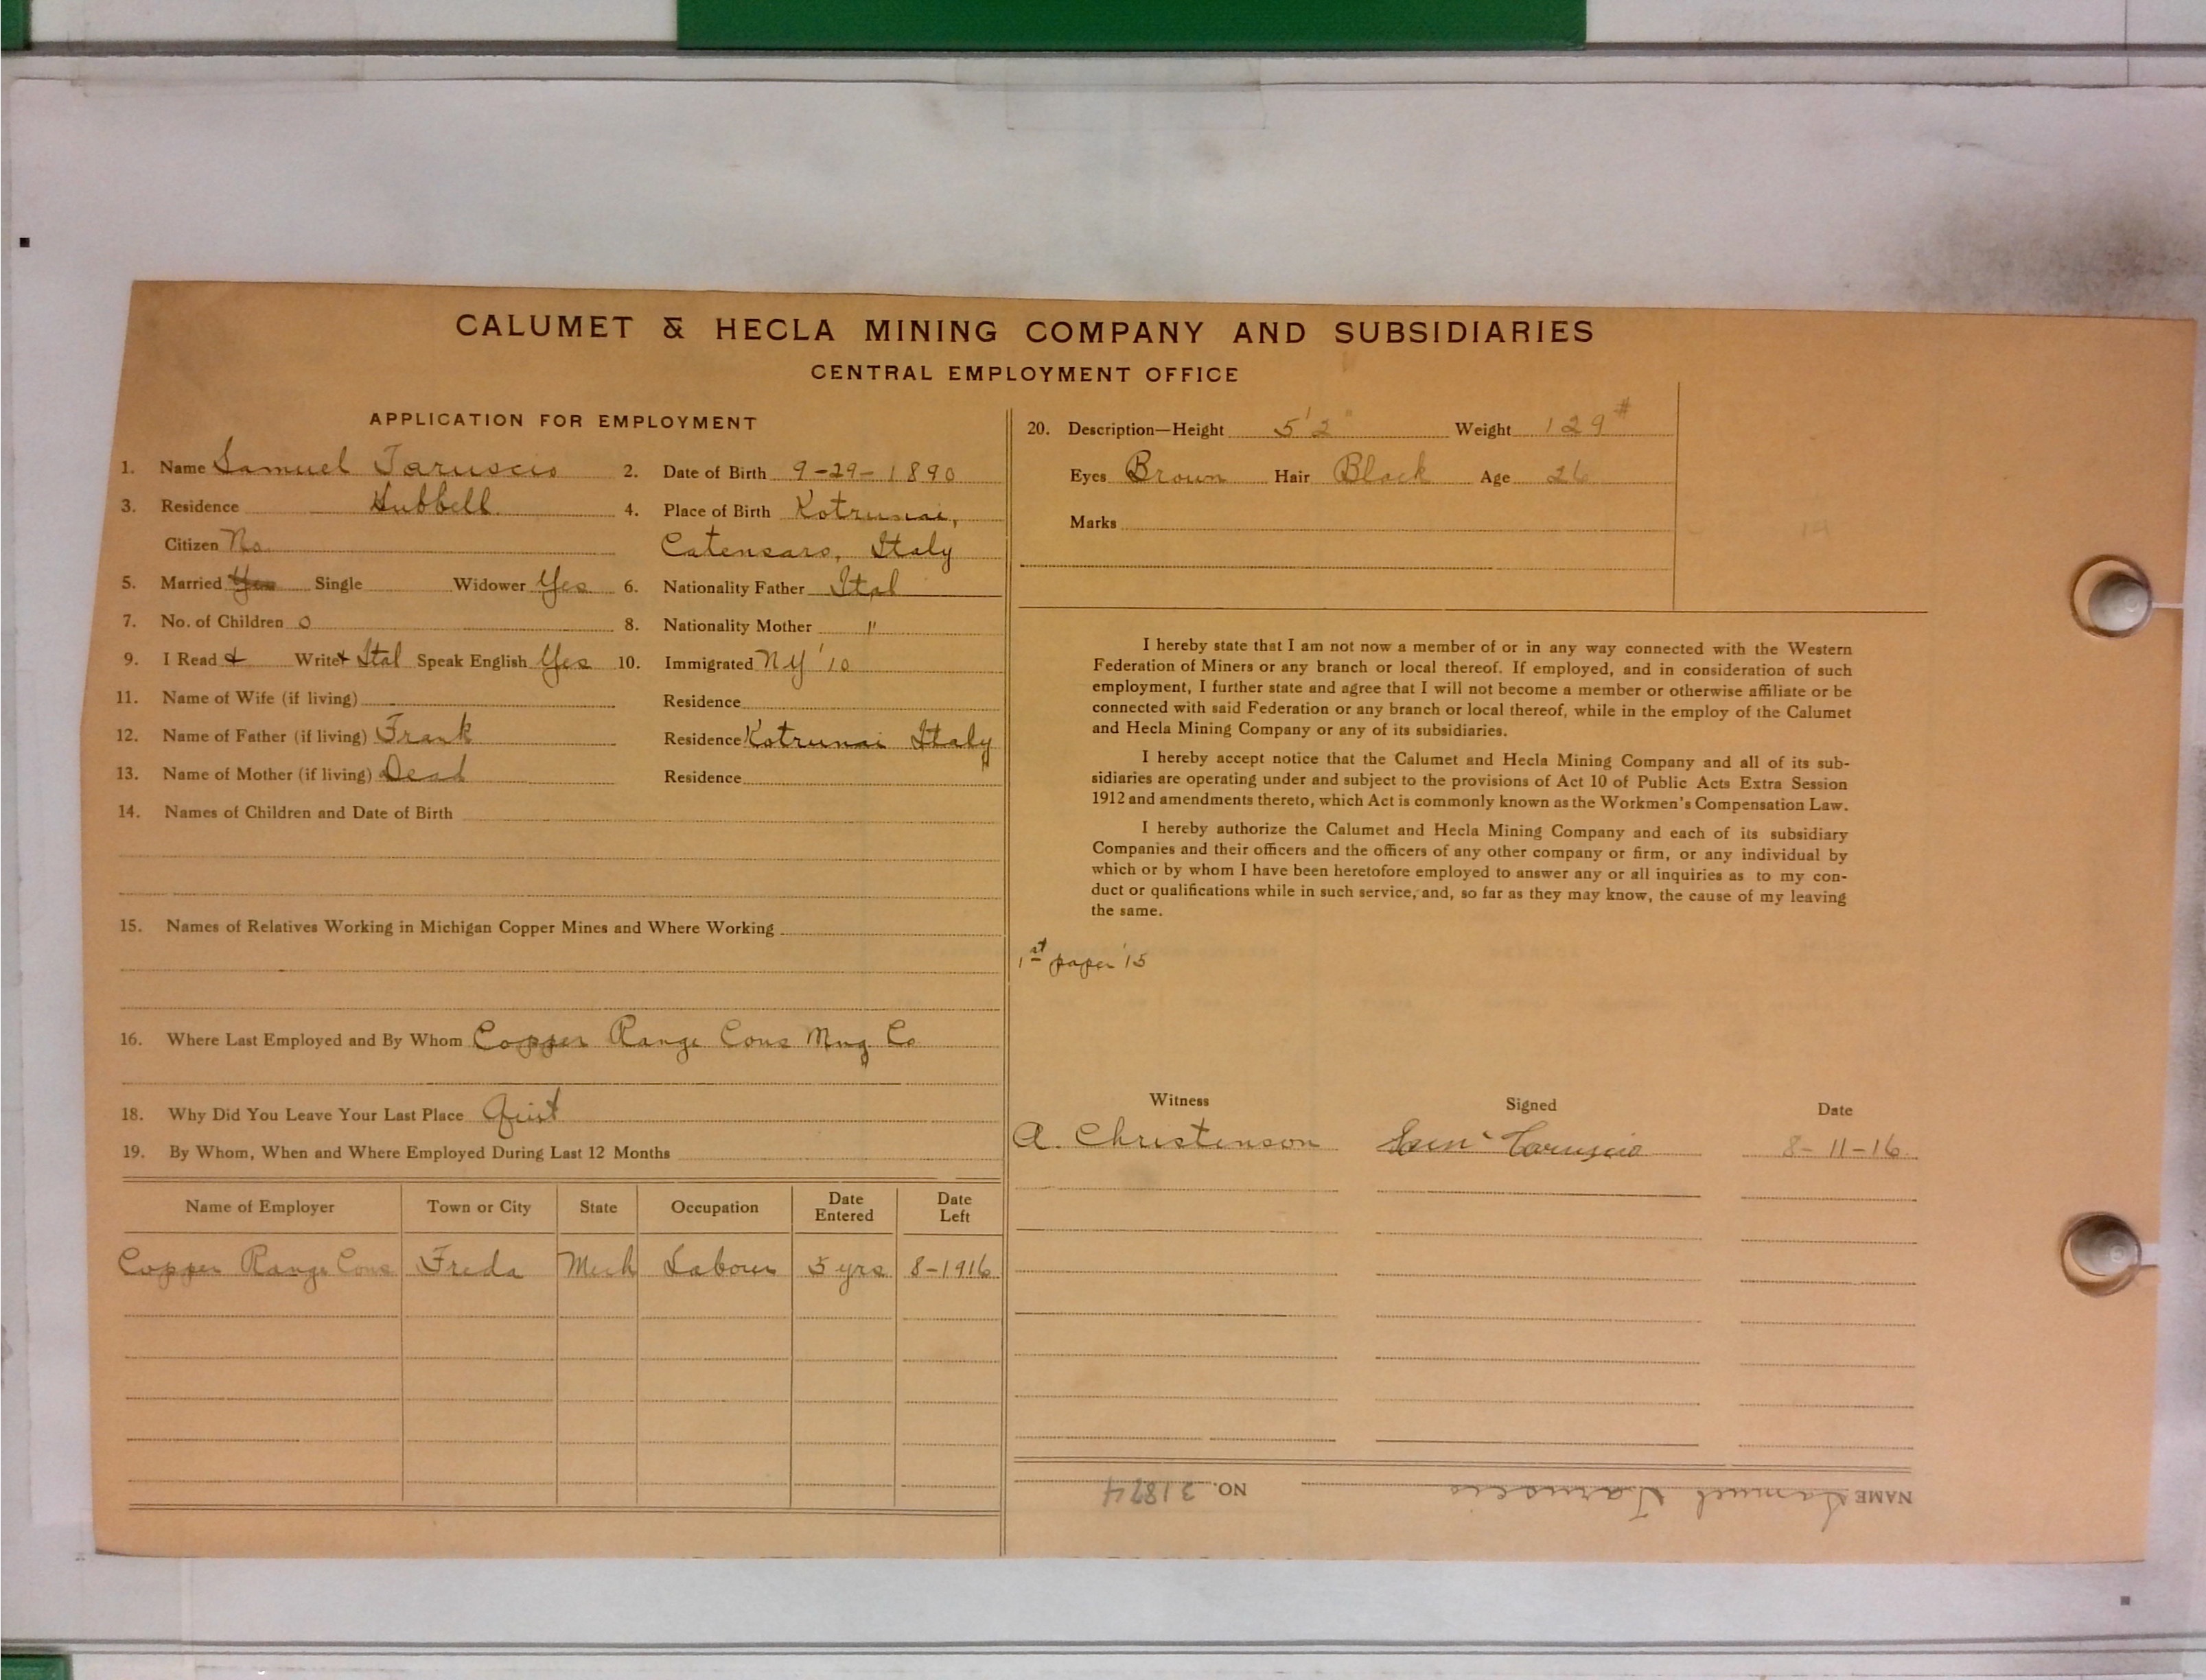 CALUMET & HECLA MINING COMPANY AND SUBSIDIARIES
CENTRAL EMPLOYMENT OFFICE
APPLICATION FOR EMPLOYMENT
1. Name Samuel Taruscio 2. Date of Birth 9-29-1890
3. Residence Hubbell 4. Place of Birth Kotrunai,
Citizen No Catensaro, Italy
5. Married Yes Single Widower Yes 6. Nationality Father Ital
7. No. of Children 0 8. Nationality Mother "
9. I Read & Write & Ital Speak English Yes 10. Immigrated NY '10
11. Name of Wife (if living) Residence
12. Name of Father (if living) Frank Residence Kotrunai Italy
13. Name of Mother (if living) Dead Residence
14. Names of Children and Date of Birth
15. Names of Relatives Working in Michigan Copper Mines and Where Working
16. Where Last Employed and By Whom Copper Range Cons Mng Co
18. Why Did You Leave Your Last Place Quit
19. By Whom, When and Where Employed During Last 12 Months
Name of Employer Town or City State Occupation Date Entered Date Left
Copper Range Cons Freda Mich Laborer 5 yrs 8-1916
20. Description—Height 5'2" Weight 129#
Eyes Brown Hair Black Age 26
Marks
I hereby state that I am not now a member of or in any way connected with the Western
Federation of Miners or any branch or local thereof. If employed, and in consideration of such
employment, I further state and agree that I will not become a member or otherwise affiliate or be
connected with said Federation or any branch or local thereof, while in the employ of the Calumet
and Hecla Mining Company or any of its subsidiaries.
I hereby accept notice that the Calumet and Hecla Mining Company and all of its sub-
sidiaries are operating under and subject to the provisions of Act 10 of Public Acts Extra Session
1912 and amendments thereto, which Act is commonly known as the Workmen's Compensation Law.
I hereby authorize the Calumet and Hecla Mining Company and each of its subsidiary
Companies and their officers and the officers of any other company or firm, or any individual by
which or by whom I have been heretofore employed to answer any or all inquiries as to my con-
duct or qualifications while in such service, and, so far as they may know, the cause of my leaving
the same.
1st paper '15
Witness Signed Date
A. Christenson Taruscio 8-11-16
NAME Samuel Taruscio NO. 31874